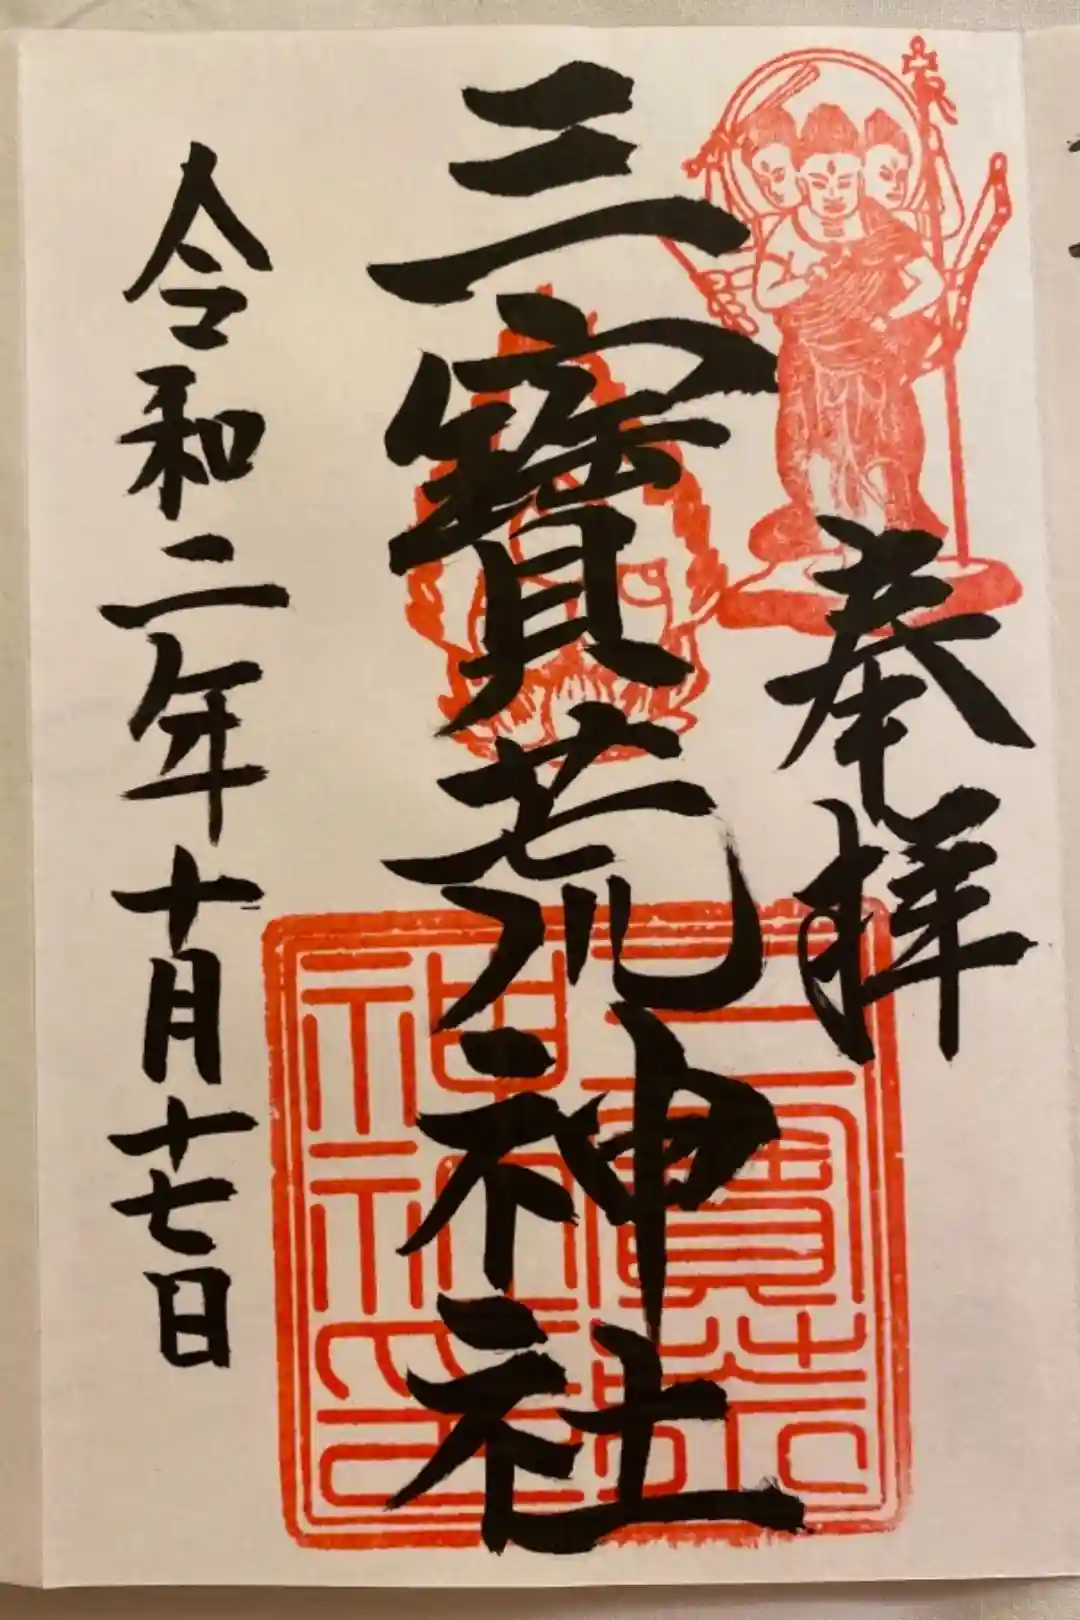 奉拝
三寳荒神社
三寳荒神社印
令和二年十月十七日